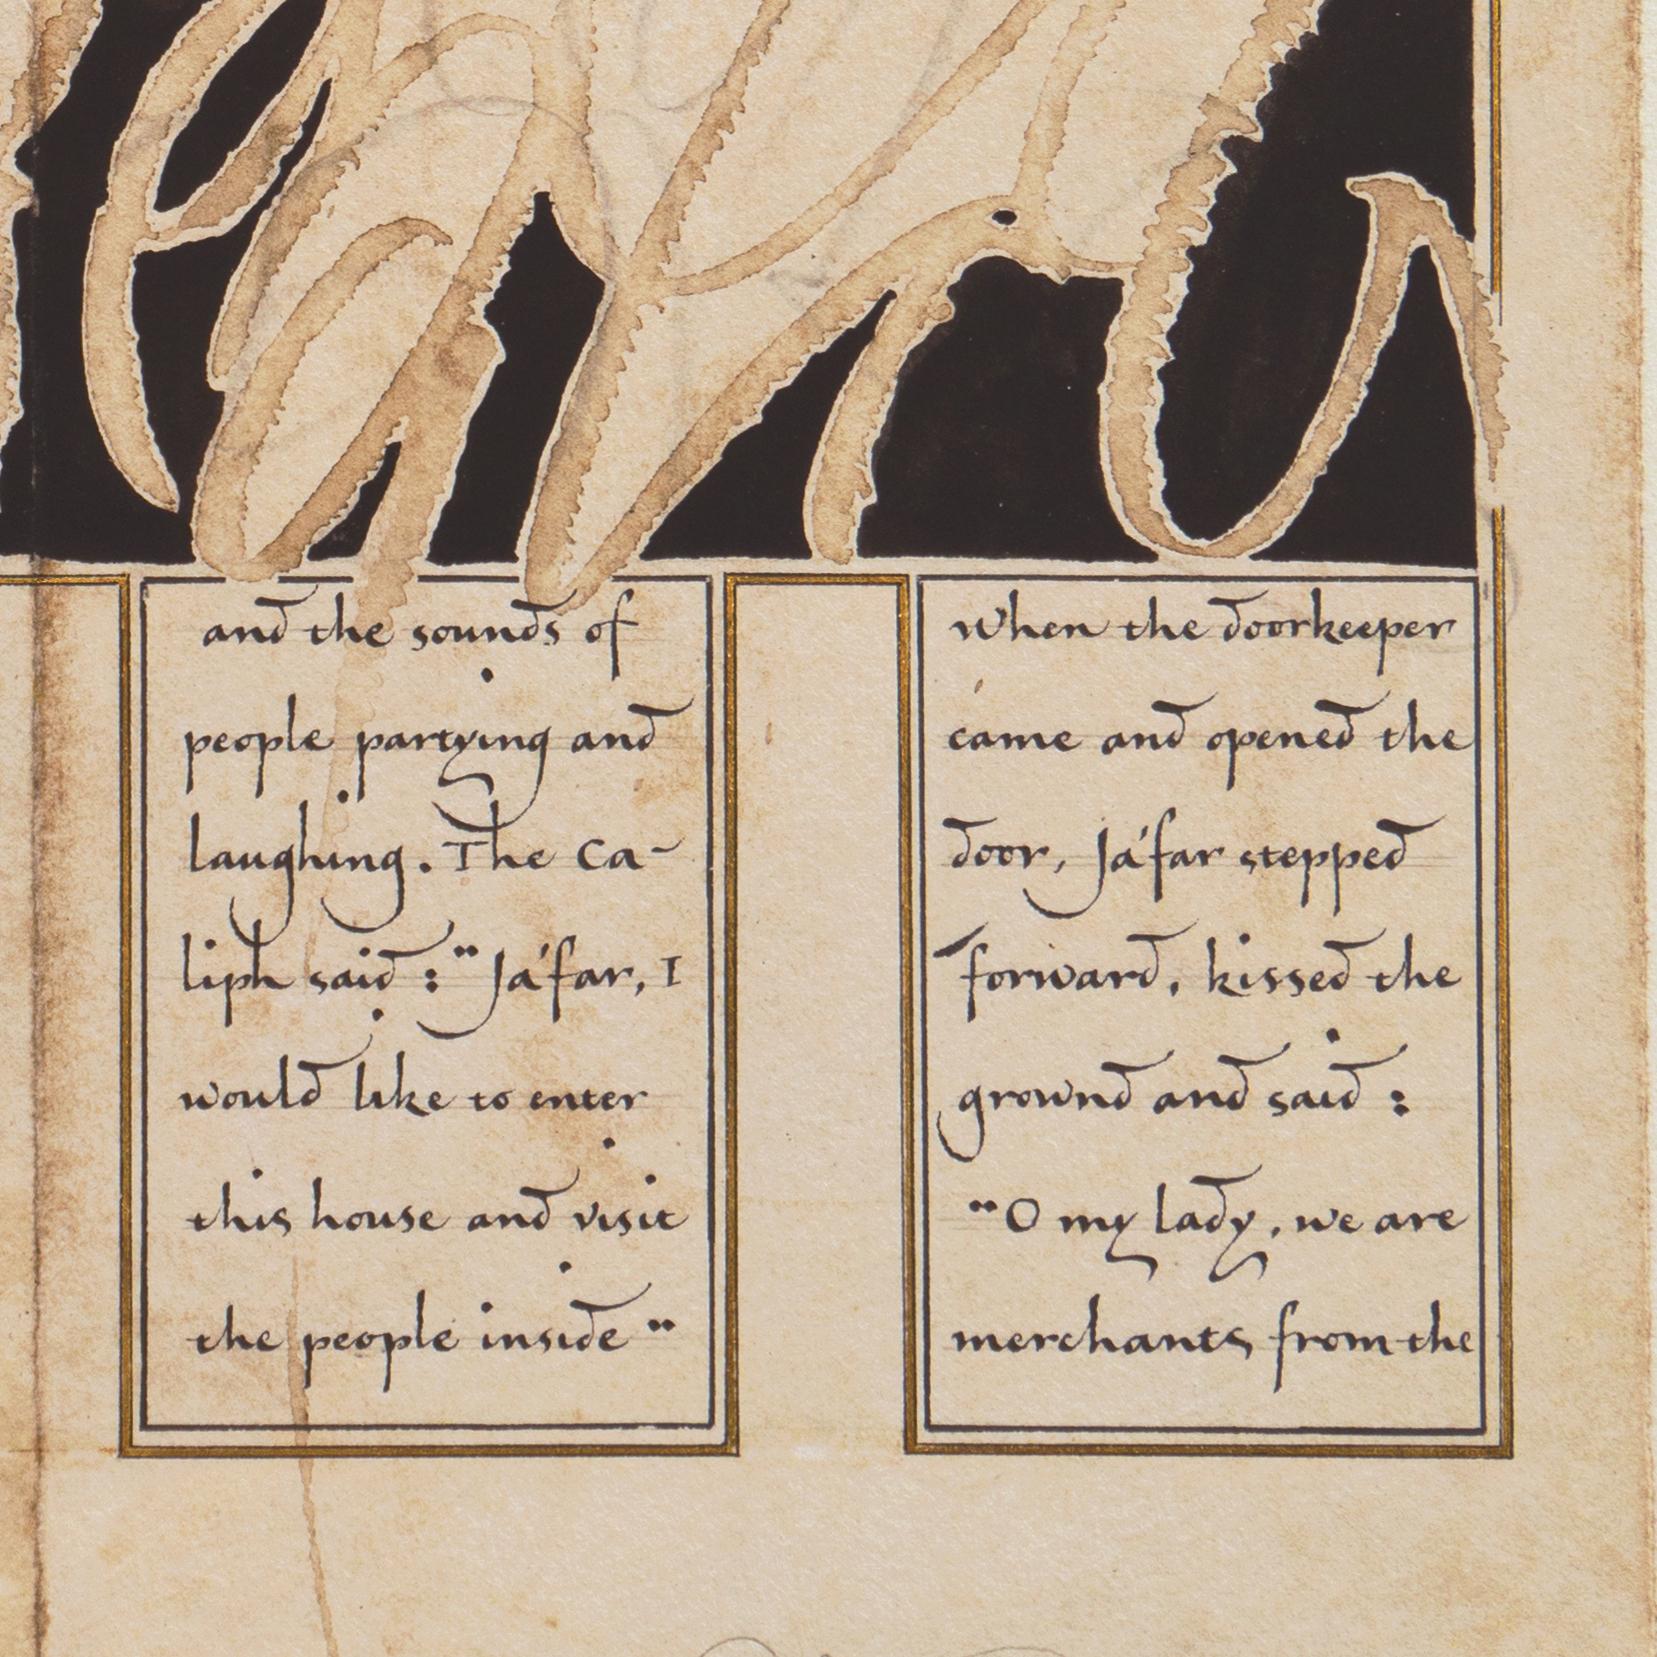 and the sounds of
people partying and
laughing. The ca-
liph said : "Ja'far, I
would like to enter
this house and visit
the people inside"
when the doorkeeper
came and opened the
door, Ja'far stepped
forward, kissed the
grownd and said :
"O my lady, we are
merchants from the